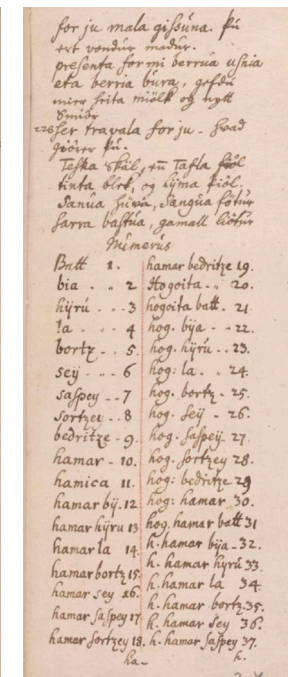 for ju mala gissuna. þú
ert vondúr madúr.
presenta for mi berrúa usnia
eta berria búra, gefdú
mier heita miölk og nytt
Smiör
226 ser travala for ju. hvad
giörer þú.
Teska Skál, en Tafla fiöl
tinta blek, og
Sanúa fötúr
Sarra bastúa, gamall
Númerús
Batt 1.
bia - - 2
hyrú - - - 3
la - - - 4
bortz - - 5.
sey - - - 6
saspey - - 7
sortzey - - 8
bedritze - 9.
hamar - 10.
hamica 11.
hamar bij - 12
hamar hyru 13
hamar la 14
hamar bortz 15.
hamar sey 16.
hamar saspey 17.
hamar sortzey 18.
ha-
hamar bedritze 19.
Hogoita - - 20.
hogoita batt. 21
hog. bija - - 22.
hog. hyrú - - 23.
hog: la. - 24.
hog. bortz - 25.
hog. sey - 26.
hog. saspeij. 27.
hog. sortzey 28.
hog: bedritze 29
hog: hamar 30.
hog. hamar batt 31
h. hamar bija - 32.
h. hamar hyrú 33.
h. hamar la 34.
h. hamar bortz. 35.
h. hamar sey 36.
h. hamar saspey 37.
h.